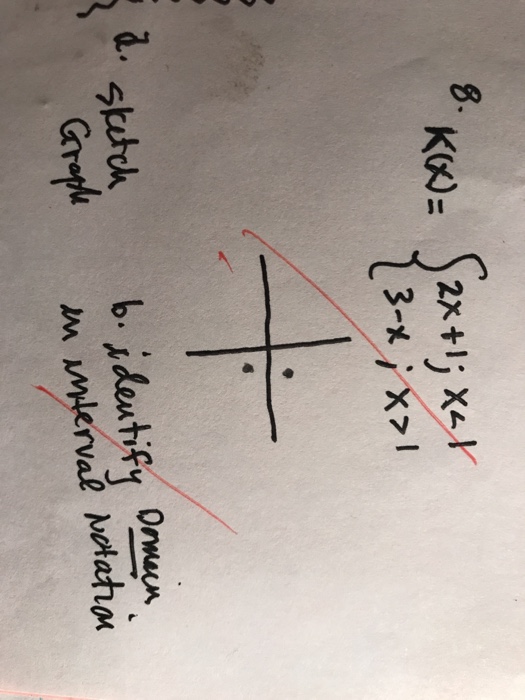 8. K(x) = { 2x+1; x<1
3-x; x>1
a. sketch
Graph
b. identify Domain
in interval Notation